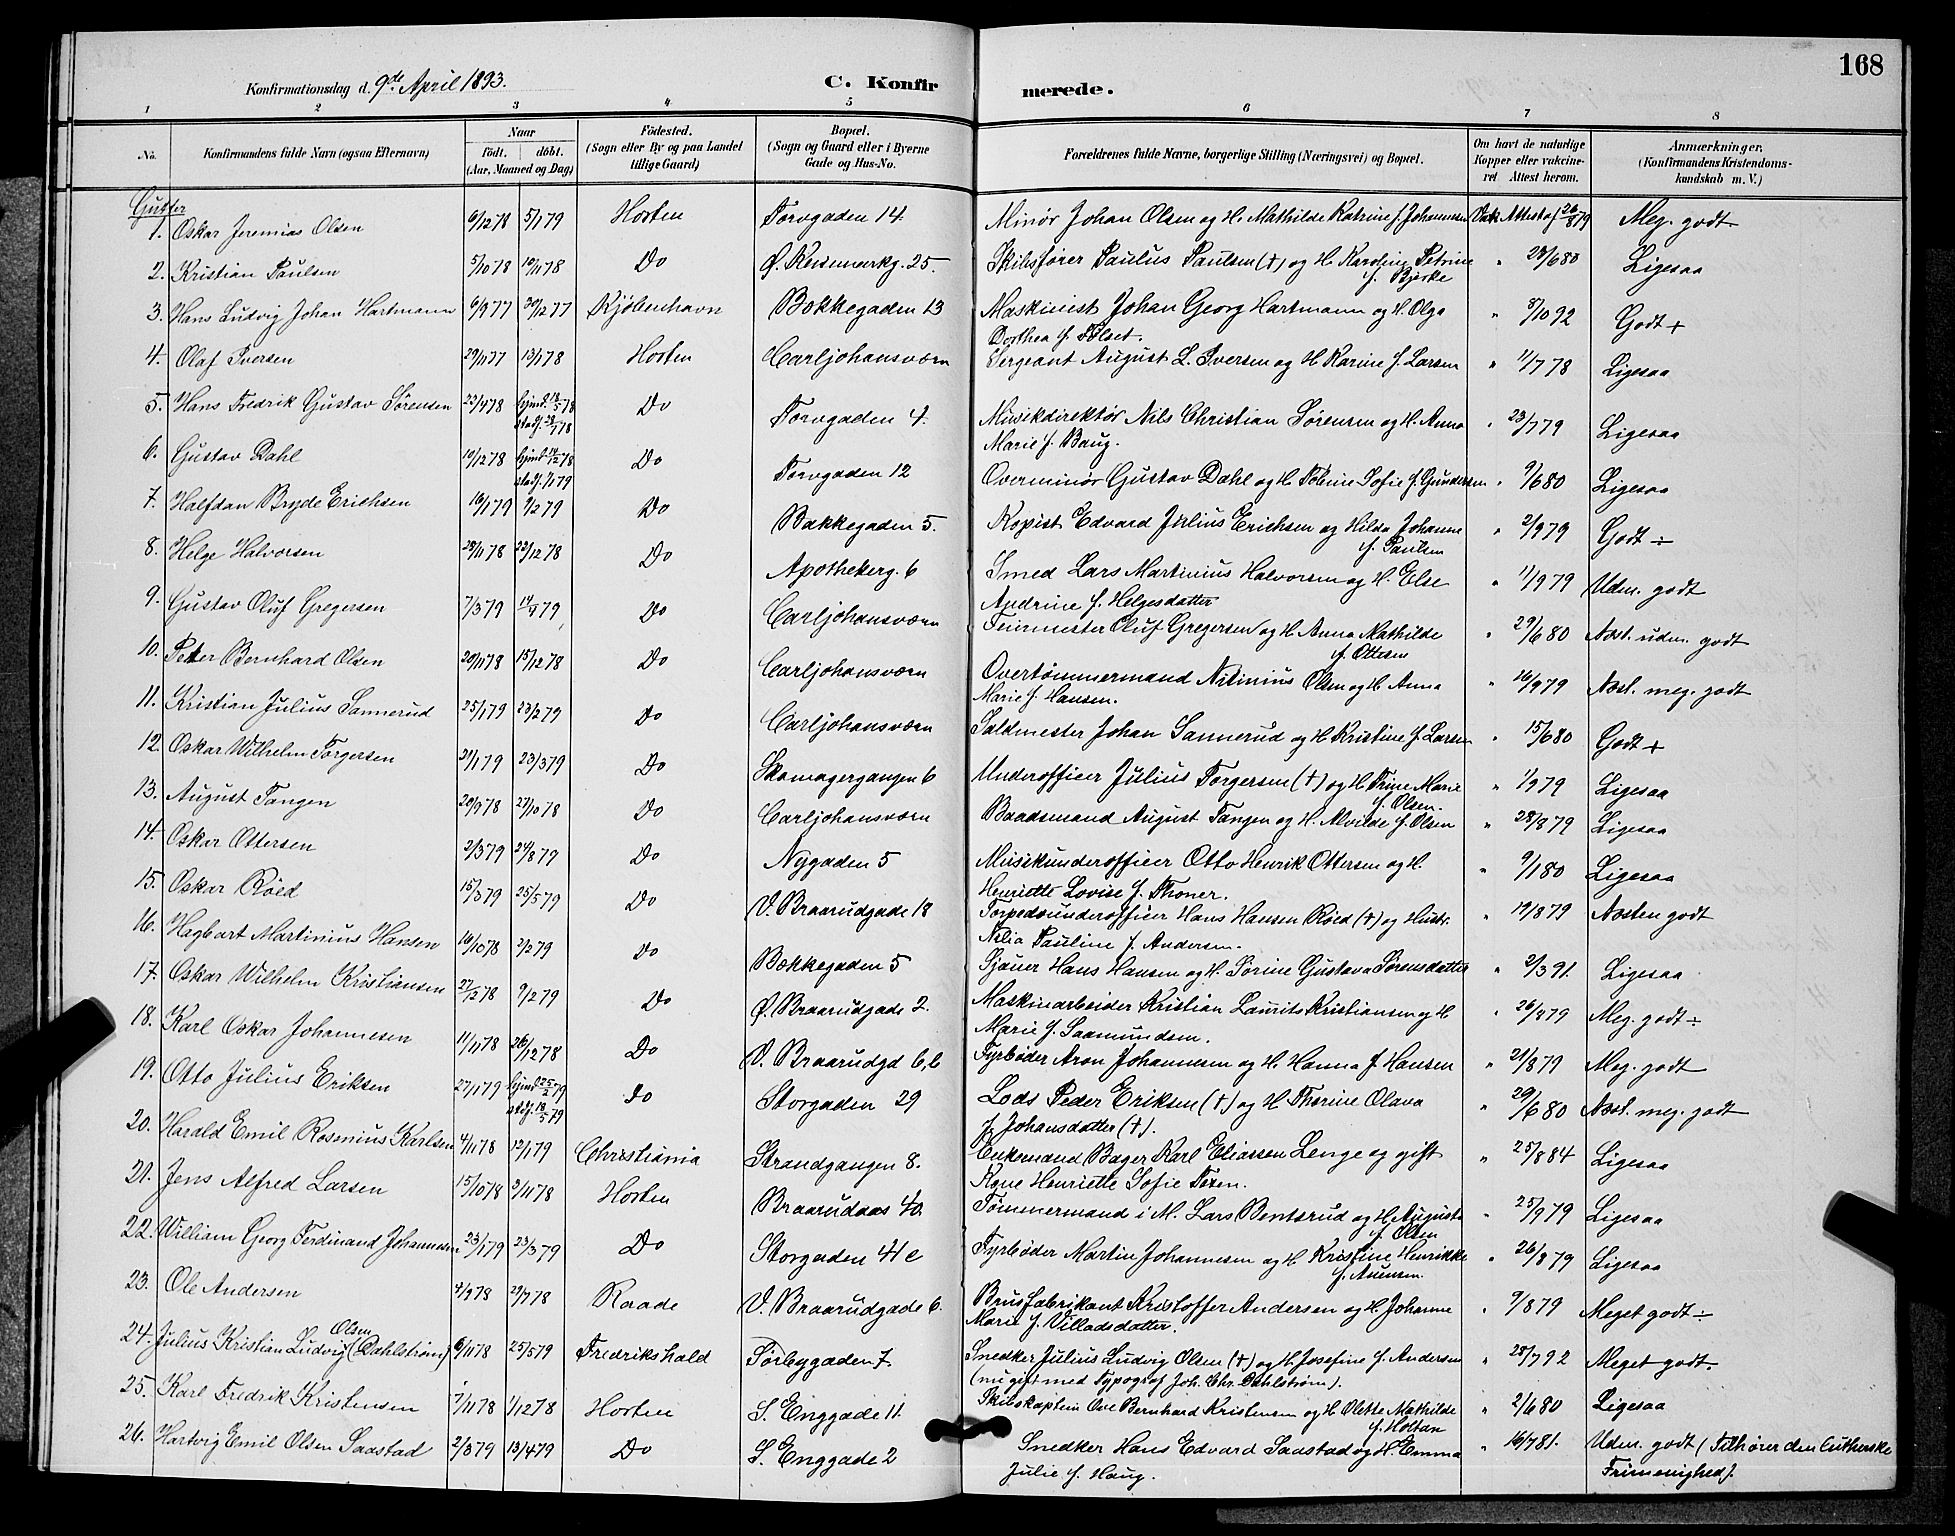 168
Konfirmationsdag d. 9de April 1893.
C. Konfirmerede.
1 2 3 4 5 6 7 8
No. Konfirmandens fulde Navn (ogsaa Efternavn) Naar født. døbt. (Aar, Maaned og Dag) Fødested. (Sogn eller By og paa Landet tillige Gaard) Bopæl. (Sogn og Gaard eller i Byerne Gade og Hus-No. Forældrenes fulde Navne, borgerlige Stilling (Næringsvei) og Bopæl. Om havt de naturlige Kopper eller vakcineret. Attest herom. Anmærkninger. (Konfirmandens Kristendomskundskab m. V.)
Gutter
1. Oskar Jeremias Olsen 6/12 78 5/1 79 Horten Torvgaden 14. Minør Johan Olsen og H. Mathilde Katrine f. Johannesen Vak. Attest af 26/8 79 Meg. godt
2. Kristian Paulsen 5/10 78 10/11 78 Do Ø. Keisemarkg. 25. Skibsfører Paulus Paulsen (†) og H. Karoline Petrine f. Bjerke " 28/6 80 Ligesaa
3. Hans Ludvig Johan Hartmann 6/9 77 30/12 77 Kjøbenhavn Bakkegaden 13 Maskinist Johan Georg Hartmann og H. Olga Dorthea f. Følset. " 8/10 92 Godt +
4. Olaf Iversen 29/11 77 13/1 78 Horten Carljohansværn Sergeant August L. Iversen og H. Karine f. Larsen " 11/7 78 Ligesaa
5. Hans Fredrik Gustav Sørensen 23/4 78 hjmd. 18/5 78 stadf. 28/7 78 Do Torvgaden 4. Musikdirektør Nils Christian Sørensen og H. Anna Marie f. Baug. " 23/7 79 Ligesaa
6. Gustav Dahl 10/12 78 hjmd. 14/12 78 stadf. 1/1 79 Do Torvgaden 12 Overminør Gustav Dahl og H. Tobine Sofie f. Gundersen " 9/6 80 Ligesaa
7. Halfdan Bryde Erichsen 16/1 79 9/2 79 Do Bakkegaden 5. Kopist Edvard Julius Erichsen og Hilda Johanne f. Paulsen " 2/9 79 Godt ÷
8. Helge Halvorsen 28/11 78 22/12 78 Do Apothekerg. 6 Smed Lars Martinius Halvorsen og H. Else Andrine f. Helgesdatter " 11/9 79 Udm. godt
9. Gustav Oluf Gregersen 7/3 79 14/4 79 Do Carljohansværn Feiermester Oluf Gregersen og H. Anna Mathilde f. Ottesen " 29/6 80 Næst. udm. godt
10. Peter Bernhard Olsen 20/11 78 15/12 78 Do Carljohansværn Overtømmermand Nitinius Olsen og H. Anna Marie f. Hansen. " 16/9 79 Næst. meg. godt
11. Kristian Julius Sannerud 25/1 79 23/2 79 Do Carljohansværn Saldmester Johan Sannerud og H. Kristine f. Larsen " 15/6 80 Godt +
12. Oskar Wilhelm Torgersen 21/1 79 23/3 79 Do Skomagergangen 6 Underofficer Julius Torgersen (†) og H. Trine Marie f. Olsen. " 1/9 79 Ligesaa
13. August Tangen 20/9 78 27/10 78 Do Carljohansværn Baadsmand August Tangen og H. Alvilde f. Olsen " 28/8 79 Ligesaa
14. Oskar Ottersen 2/3 79 24/8 79 Do Nygaden 5 Musikunderofficer Otto Henrik Ottersen og H. Henriette Lovise f. Thoner. " 9/1 80 Ligesaa
15. Oskar Röed 15/3 79 25/5 79 Do V. Braarudgade 18 Torpedounderofficer Hans Hansen Röed (†) og Hustr. Nilia Pauline f. Andersen. " 19/8 79 Næsten godt
16. Hagbart Martinius Hansen 16/10 78 2/2 79 Do Bakkegaden 5 Sjauer Hans Hansen og H. Sørine Gustava Sørensdatter " 2/3 91. Ligesaa
17. Oskar Wilhelm Kristiansen 27/12 78 9/2 79 Do Ø. Braarudgade 2. Maskinarbeider Kristian Laurits Kristiansen og H. Marie f. Saamundsen. " 26/8 79 Meg. godt ÷
18. Karl Oskar Johannesen 11/11 78 26/12 78 Do V. Braarudgd 6, b Fyrbøder Aron Johannesen og H. Hanna f. Hansen " 21/8 79 Meg. godt
19. Otto Julius Eriksen 27/1 79 hjmd. 25/2 79 stadf. 18/5 79 do Storgaden 29 Lods Peder Eriksen (†) og H. Thorine Olava f. Johansdatter (†). " 29/6 80 Næst. meg. godt
20. Harald Emil Rosenius Karlsen 4/11 78 12/1 79 Christiania Strandgangen 8. Enkemand Bager Karl Eliassen Lenge og gift Kone Henriette Sofie Texen. " 25/8 84 Ligesaa
21. Jens Alfred Larsen 15/10 78 3/11 78 Horten Braarudaas 40. Tømmermand i M. Lars Bentsrud og H. Augusta f. Olsen " 25/9 79 Ligesaa
22. William Georg Ferdinand Johannesen 23/1 79 23/3 79 Do Storgaden 41 c Fyrbøder Martin Johannesen og H. Kristine Henrikke " 26/8 79 Ligesaa
23. Ole Andersen 4/9 78 29/9 78 Raade V. Braarudgade 6. Brusfabrikant Kristoffer Andersen og H. Johanne Marie f. Villadsdatter. " 9/8 79 Meget godt ÷
24. Julius Kristian Ludvig Olsen (Dahlstrøm) 6/11 78 25/5 79 Fredrikshald Tørbygaden 7. Snedker Julius Ludvig Olsen (†) og H. Josefine f. Andersen (nu gift med Typograf Joh. Chr. Dahlstrøm). " 28/7 92 Meget godt.
25. Karl Fredrik Kristensen 7/11 78 1/12 78 Horten S. Enggade 11. Skibskaptein Ove Bernhard Kristensen og H. Olette Mathilde f. Holtan " 2/6 80 Ligesaa
26. Hartvig Emil Olsen Saastad 2/3 79 13/4 79 Do S. Enggade 2 Snedker Hans Edvard Saastad og H. Emma Julie f. Haug. " 16/7 81. Udm. godt (Tilhører den lutherske Frimenighed).